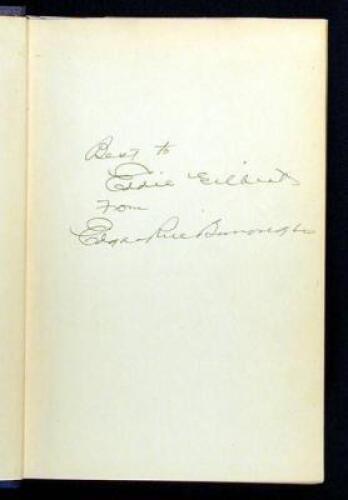 Best to
Eddie Gilbert
From
Edgar Rice Burroughs